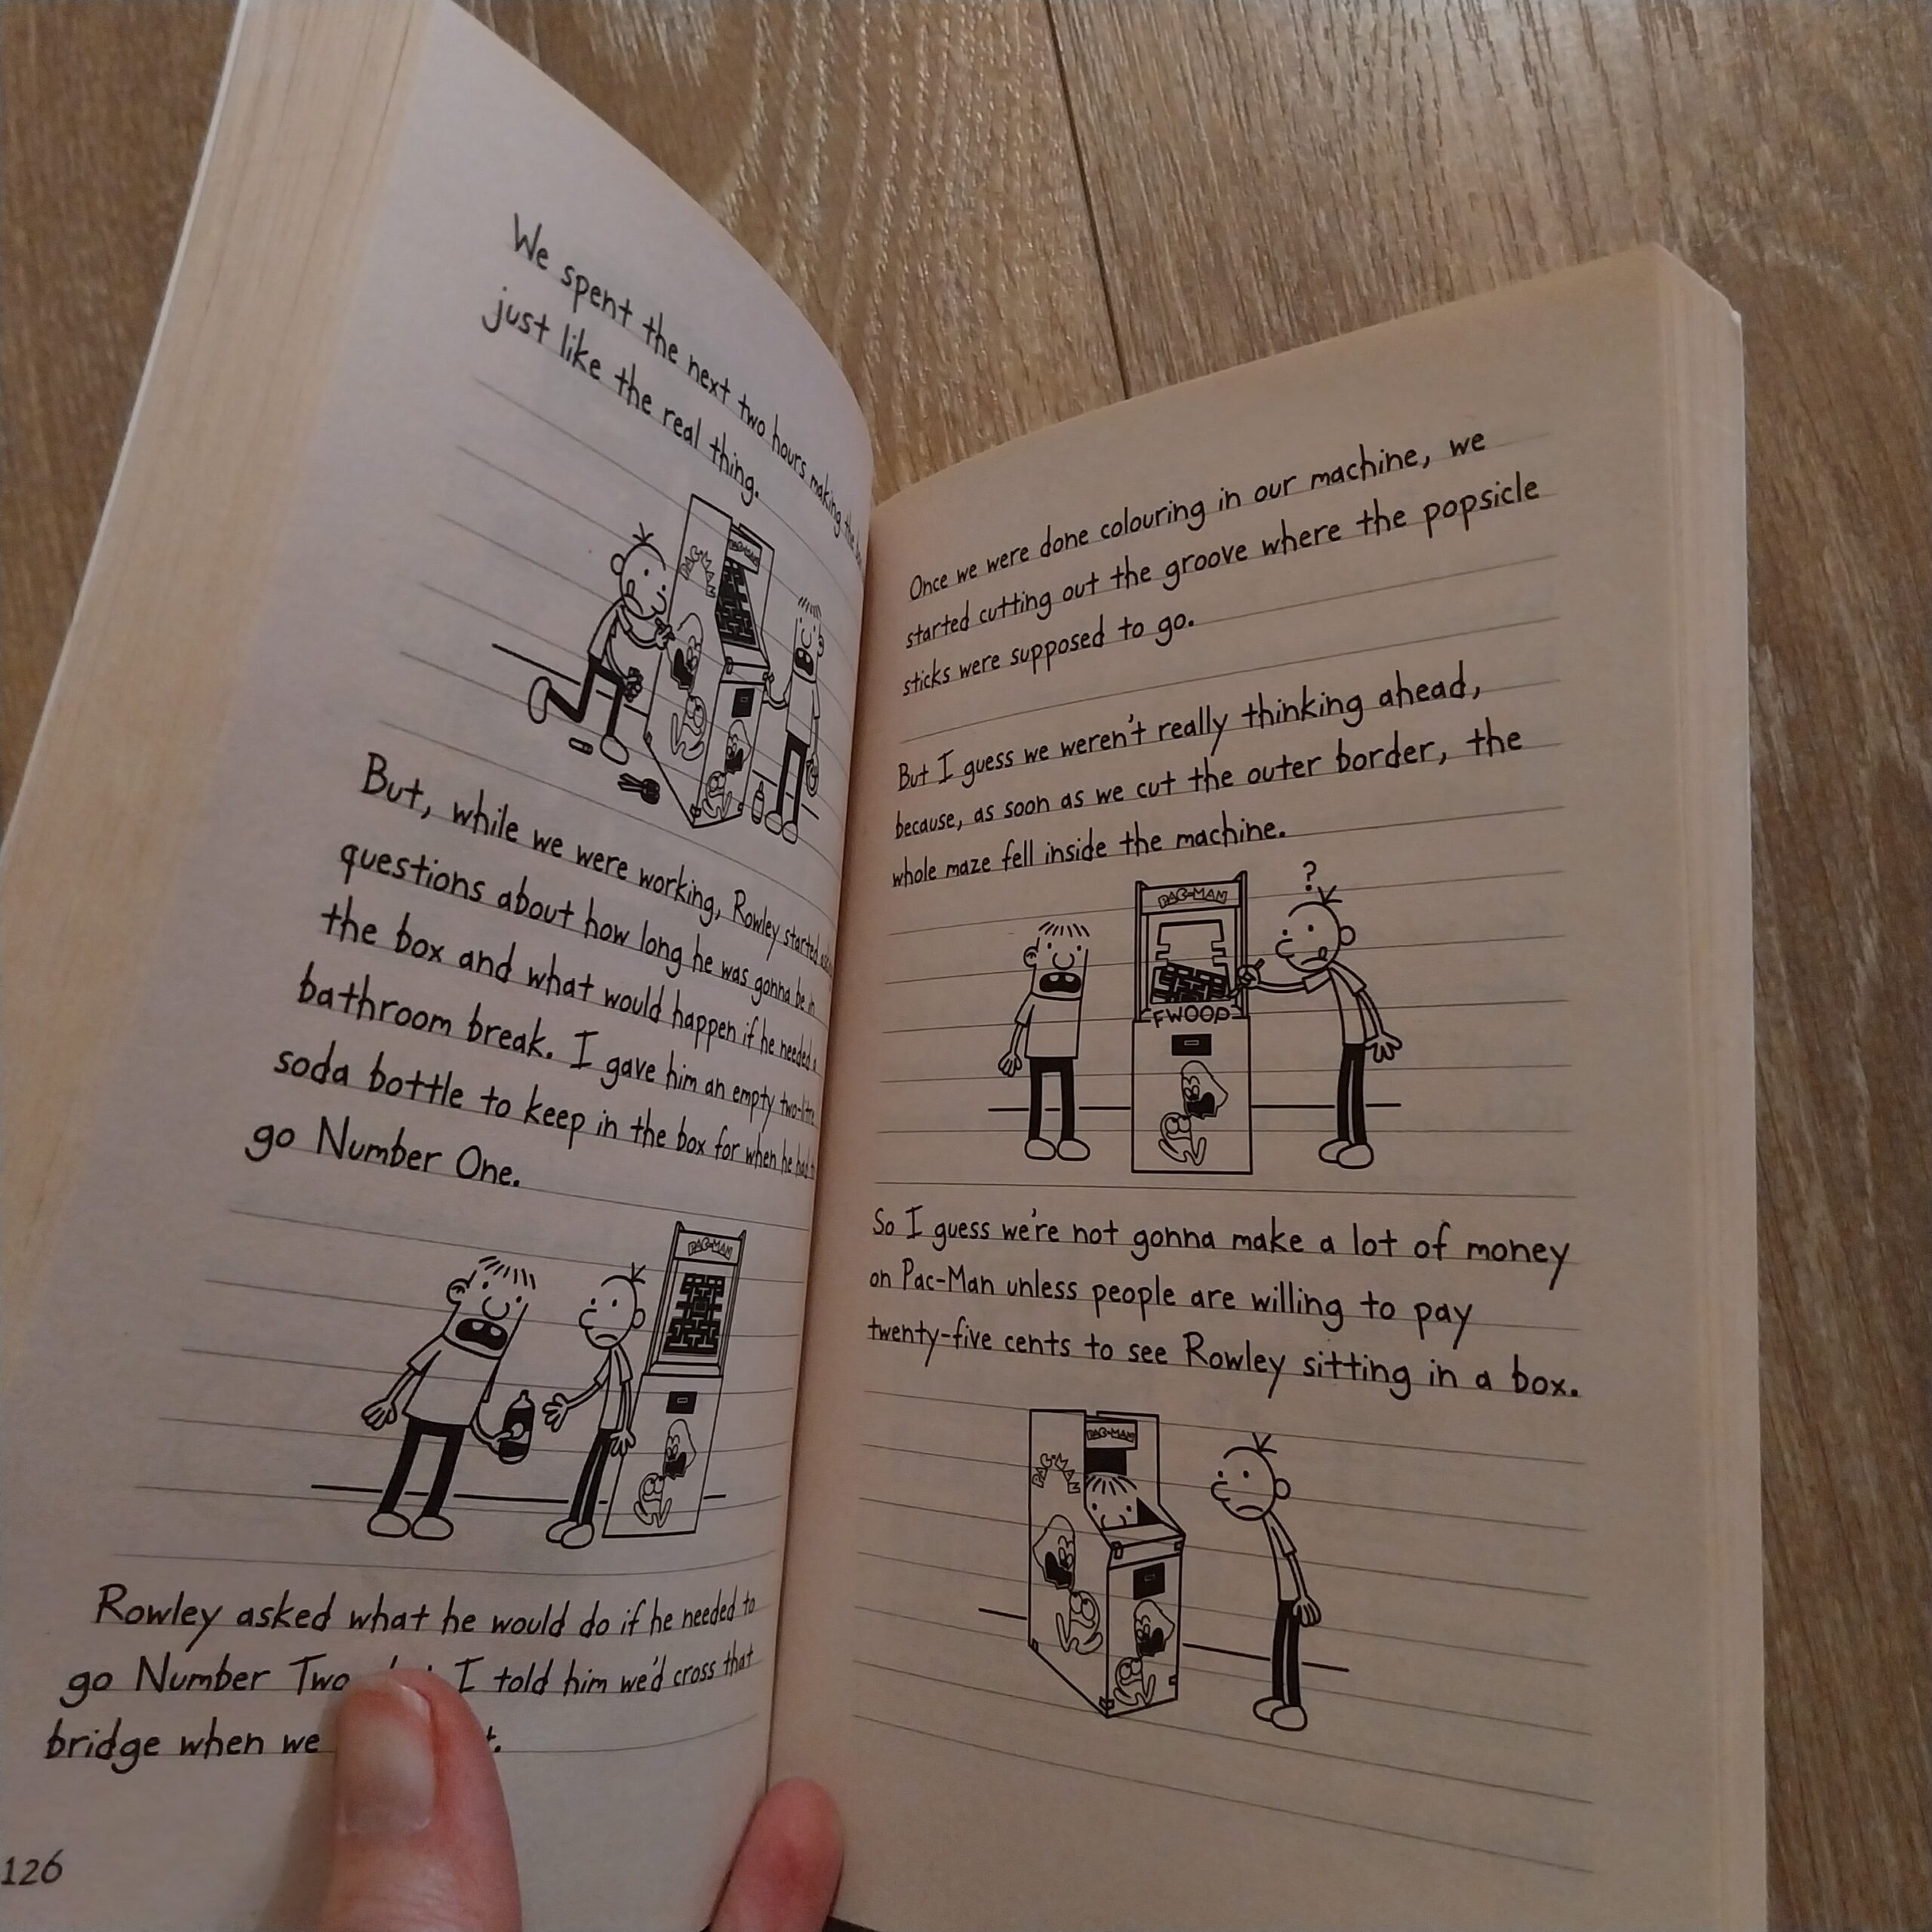 We spent the next two hours making the box
just like the real thing.
PAC-MAN
PAC-MAN
But, while we were working, Rowley started asking
questions about how long he was gonna be in
the box and what would happen if he needed a
bathroom break. I gave him an empty two-litre
soda bottle to keep in the box for when he had to
go Number One.
PAC-MAN
Rowley asked what he would do if he needed to
go Number Two I told him we'd cross that
bridge when we
126
Once we were done colouring in our machine, we
started cutting out the groove where the popsicle
sticks were supposed to go.
But I guess we weren't really thinking ahead,
because, as soon as we cut the outer border, the
whole maze fell inside the machine.
?
PAC-MAN
FWOOP
So I guess we're not gonna make a lot of money
on Pac-Man unless people are willing to pay
twenty-five cents to see Rowley sitting in a box.
PAC-MAN
PAC-MAN